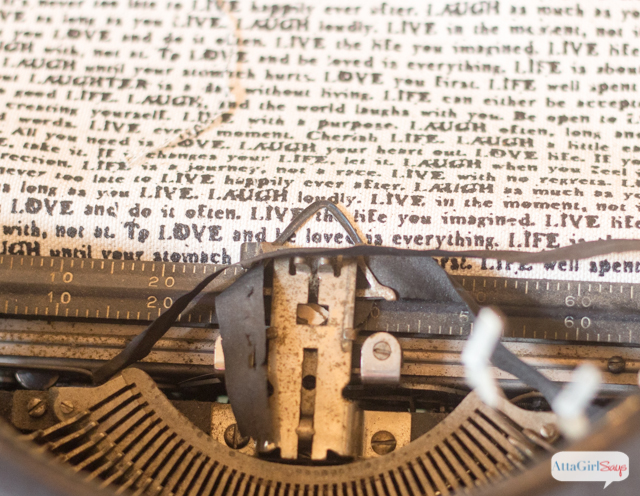 LOVE happily ever after. LAUGH as much as
as long as you LIVE. LAUGH loudly. LIVE in the moment, not
LOVE and do it often. LIVE the life you imagined. LIVE
with, not at. To LOVE and be loved is everything. LIFE is about
LAUGH until your stomach hurts. LOVE you first. LIFE well spent
LAUGHTER is a day without living. LIFE can either be accepted
good LIFE. LAUGH and the world laughs with you. Be open to
creating yourself. LIVE with a purpose. LAUGH often, long and
words. LIVE every moment. Cherish LIFE. LAUGH a little
All you need is LOVE. LAUGH your heart out. LOVE life. If
take it. IF changes your LIFE, let it. LAUGH when you feel
LIFE is a journey, not a race. LIVE with no regrets.
too late to LIVE happily ever after. LAUGH as much as you
as long as you LIVE. LAUGH loudly. LIVE in the moment, not
LOVE and do it often. LIVE the life you imagined. LIVE
with, not at. To LOVE and be loved is everything. LIFE is
LAUGH until your stomach first. LIFE well spent
10 20 60
10 20 5 60
AttaGirlSays